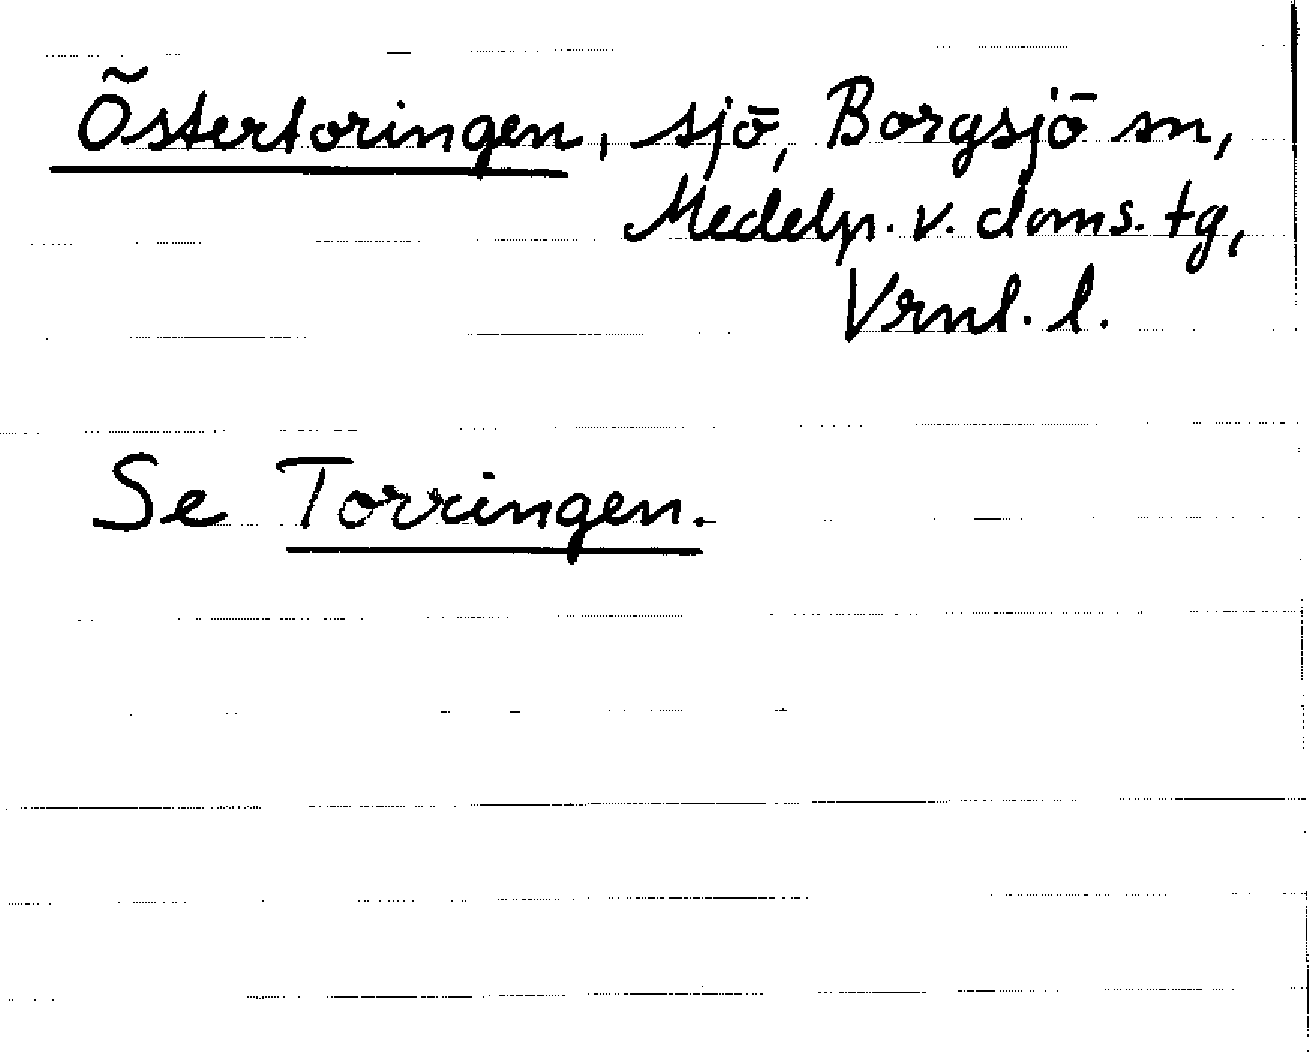 Östertoringen, sjö, Borgsjö sn,
Medelp. v. doms. tg,
Vrnl. l.
Se Torringen.